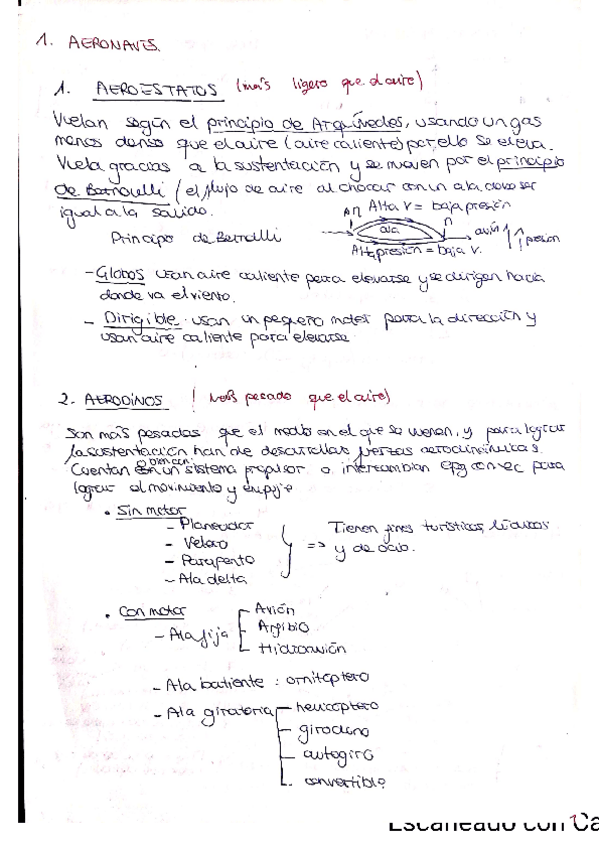 1. AERONAVES.
1. AEROESTATOS (más ligero que el aire)
Vuelan según el principio de Arquímedes, usando un gas
menos denso que el aire (aire caliente) por ello se eleva.
Vuela gracias a la sustentación y se mueven por el principio
de Bernoulli (el flujo de aire al chocar con un ala debe ser
igual a la salida.
Alta v = baja presión
Principio de Bernolli
ala
avión
presión
Alta presión = baja v.
- Globos usan aire caliente para elevarse y se dirigen hacia
donde va el viento.
- Dirigible: usan un pequeño motor para la dirección y
usan aire caliente para elevarse
2. AERODINOS (más pesado que el aire)
Son más pesadas que el medio en el que se mueven, y para lograr
la sustentación han de desarrollar fuerzas aerodinámicas.
Cuentan bien con un sistema propulsor o intercambian epg con ec para
lograr el movimiento y empuje
• Sin motor
- Planeador
- Velero
- Parapente
- Ala delta
=> Tienen fines turísticos, lúdicos
y de ocio.
• Con motor
- Ala fija
Avión
Anfibio
Hidroavión
- Ala batiente : ornitoptero
- Ala giratoria
helicoptero
girodino
autogiro
convertible
Escaneado con Ca